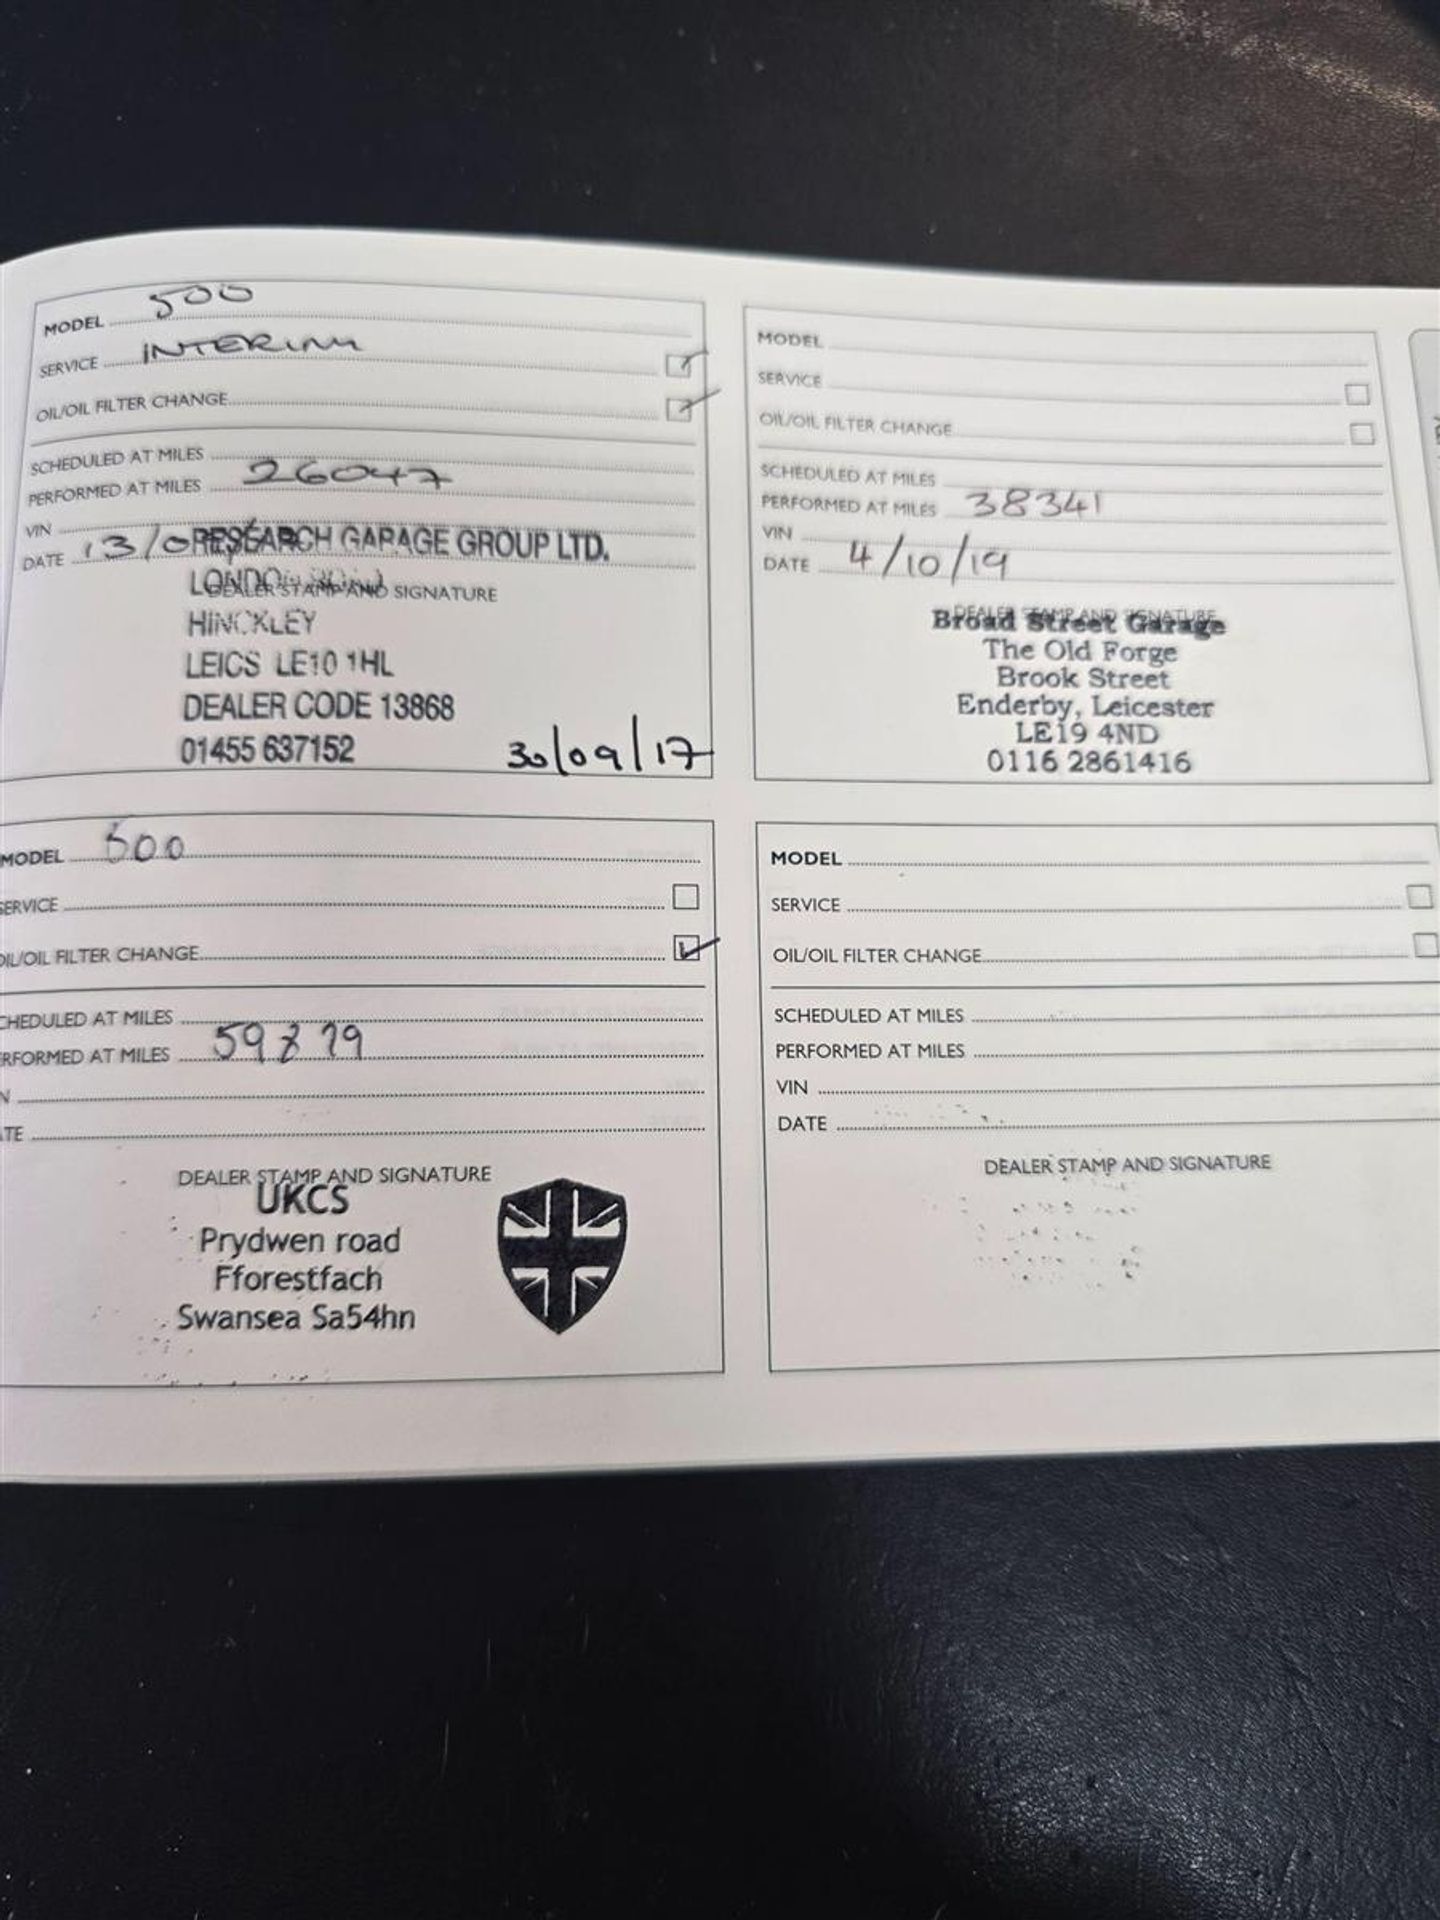 MODEL 500
SERVICE INTERIM
OIL/OIL FILTER CHANGE
SCHEDULED AT MILES
PERFORMED AT MILES 26047
VIN
DATE 13/0
RESEARCH GARAGE GROUP LTD.
LONDON ROAD
DEALER STAMP AND SIGNATURE
HINCKLEY
LEICS LE10 1HL
DEALER CODE 13868
01455 637152
30/09/17
MODEL
SERVICE
OIL/OIL FILTER CHANGE
SCHEDULED AT MILES
PERFORMED AT MILES 38341
VIN
DATE 4/10/19
DEALER STAMP AND SIGNATURE
Broad Street Garage
The Old Forge
Brook Street
Enderby, Leicester
LE19 4ND
0116 2861416
MODEL 500
SERVICE
OIL/OIL FILTER CHANGE
CHEDULED AT MILES
RFORMED AT MILES 59879
N
TE
DEALER STAMP AND SIGNATURE
UKCS
Prydwen road
Fforestfach
Swansea Sa54hn
MODEL
SERVICE
OIL/OIL FILTER CHANGE
SCHEDULED AT MILES
PERFORMED AT MILES
VIN
DATE
DEALER STAMP AND SIGNATURE